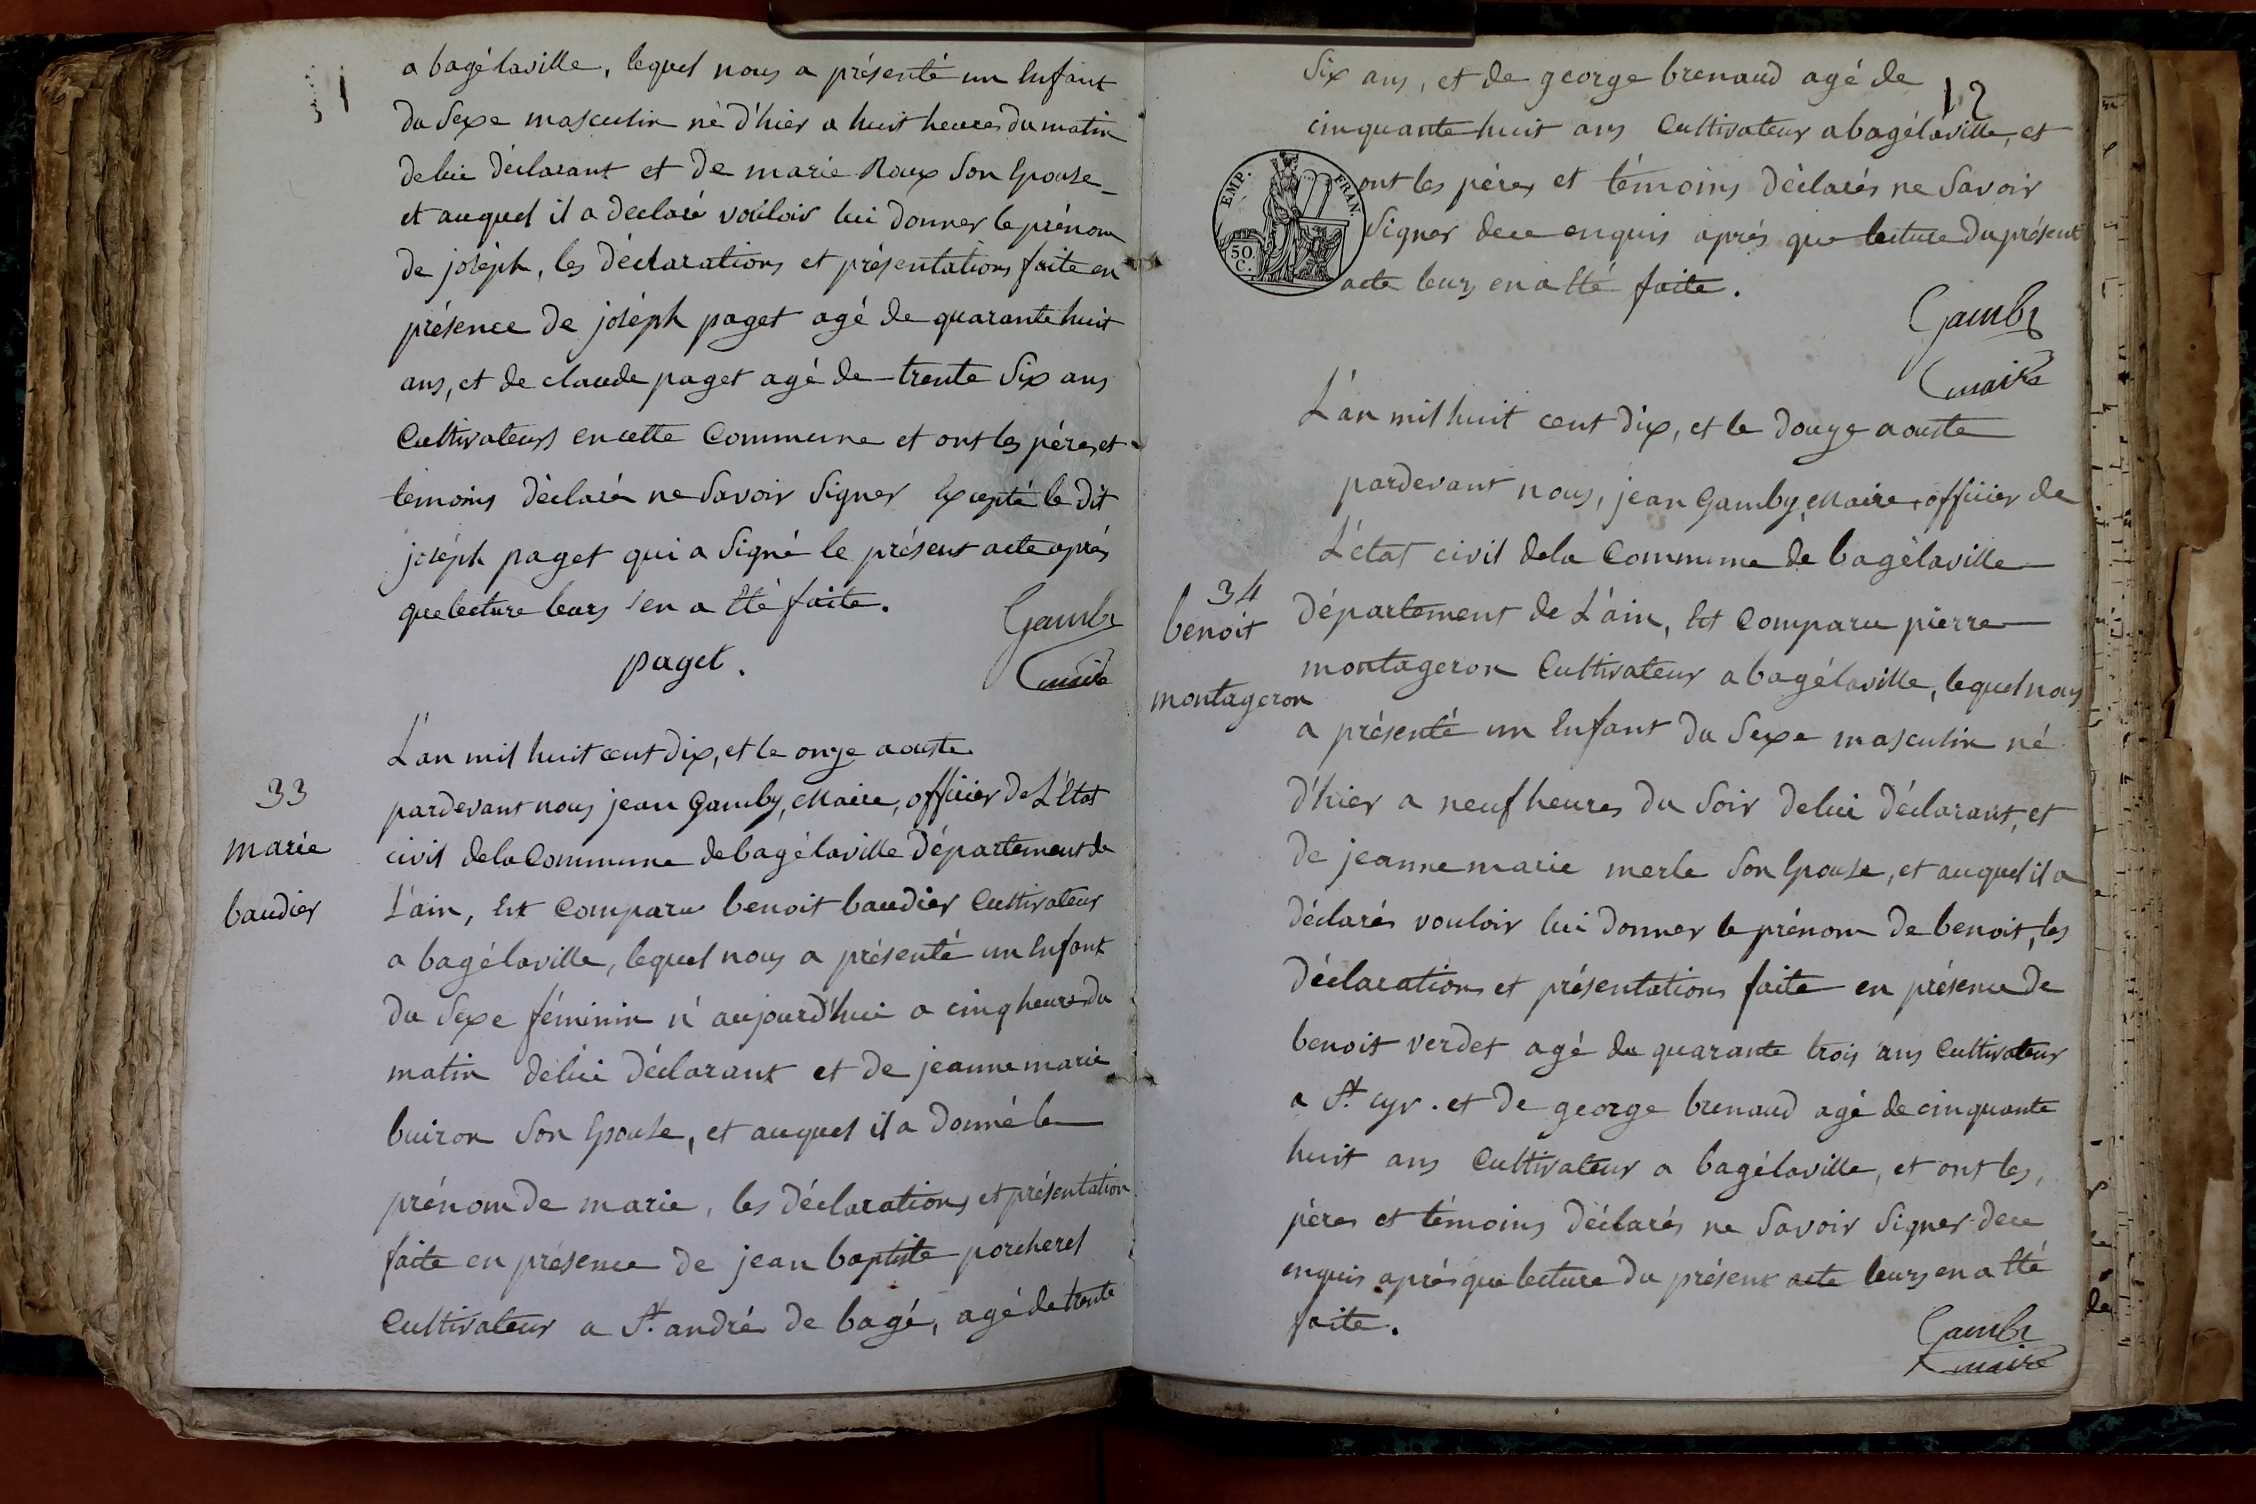 a bagélaville, lequel nous a présenté un Enfant
du Sexe masculin né d'hier a huit heures du matin
delui déclarant et de marie Roux Son Epouse
et auquel il a declaré vouloir lui donner le prénom
de joséph, les déclarations et présentations faite en
présence de joséph paget agé de quarante huit
ans, et de claude paget agé de trente Six ans
Cultivateurs en cette Commune et ont les péres et
temoins déclarés ne Savoir Signer Excepté le dit
joséph paget qui a Signé le présent acte aprés
que lecture leurs s'en a Eté faite.
paget.
Gamby
maire
33
marie
baudier
L'an mil huit cent dix, et le onze aouste
pardevant nous jean Gamby, Maire, officier de L'Etat
civil de la Commune de bagélaville Département de
L'ain, Est Comparu benoit baudier Cultivateur
a bagélaville, lequel nous a présenté un Enfant
du Sexe féminin né aujourd'hui a cinq heures du
matin delui déclarant et de jeanne marie
buiron Son Epouse, et auquel il a Donné le
prénom de marie, les déclarations et présentation
faite en présence de jean baptiste porcherel
Cultivateur a St. andré de bagé, agé de trente
12
Six ans, et de george brenaud agé de
cinquante huit ans Cultivateur a bagélaville, et
ont les péres et témoins déclarés ne Savoir
Signer dece enquis aprés que lecture du présent
acte leurs en a Eté faite.
EMP. FRAN.
50.
C.
Gamby
maire
34
benoit
montageron
L'an mil huit cent dix, et le douze aouste
pardevant nous, jean Gamby, Maire, officier de
L'état civil dela Commune de bagélaville
Département de L'ain, Est Comparu pierre
montageron Cultivateur a bagélaville, lequel nous
a présenté un Enfant du Sexe masculin né
d'hier a neuf heures du Soir delui déclarant, et
de jeanne marie merle Son Epouse, et auquel il a
déclarés vouloir lui donner le prénom de benoit, les
déclarations et présentations faite en présence de
benoit verdet agé de quarante trois ans Cultivateur
a St. cyr. et de george brenaud agé de cinquante
huit ans Cultivateur a bagélaville, et ont les,
péres et témoins déclarés ne Savoir Signer dece
enquis aprés que lecture du présent acte leurs en a Eté
faite.
Gamby
maire